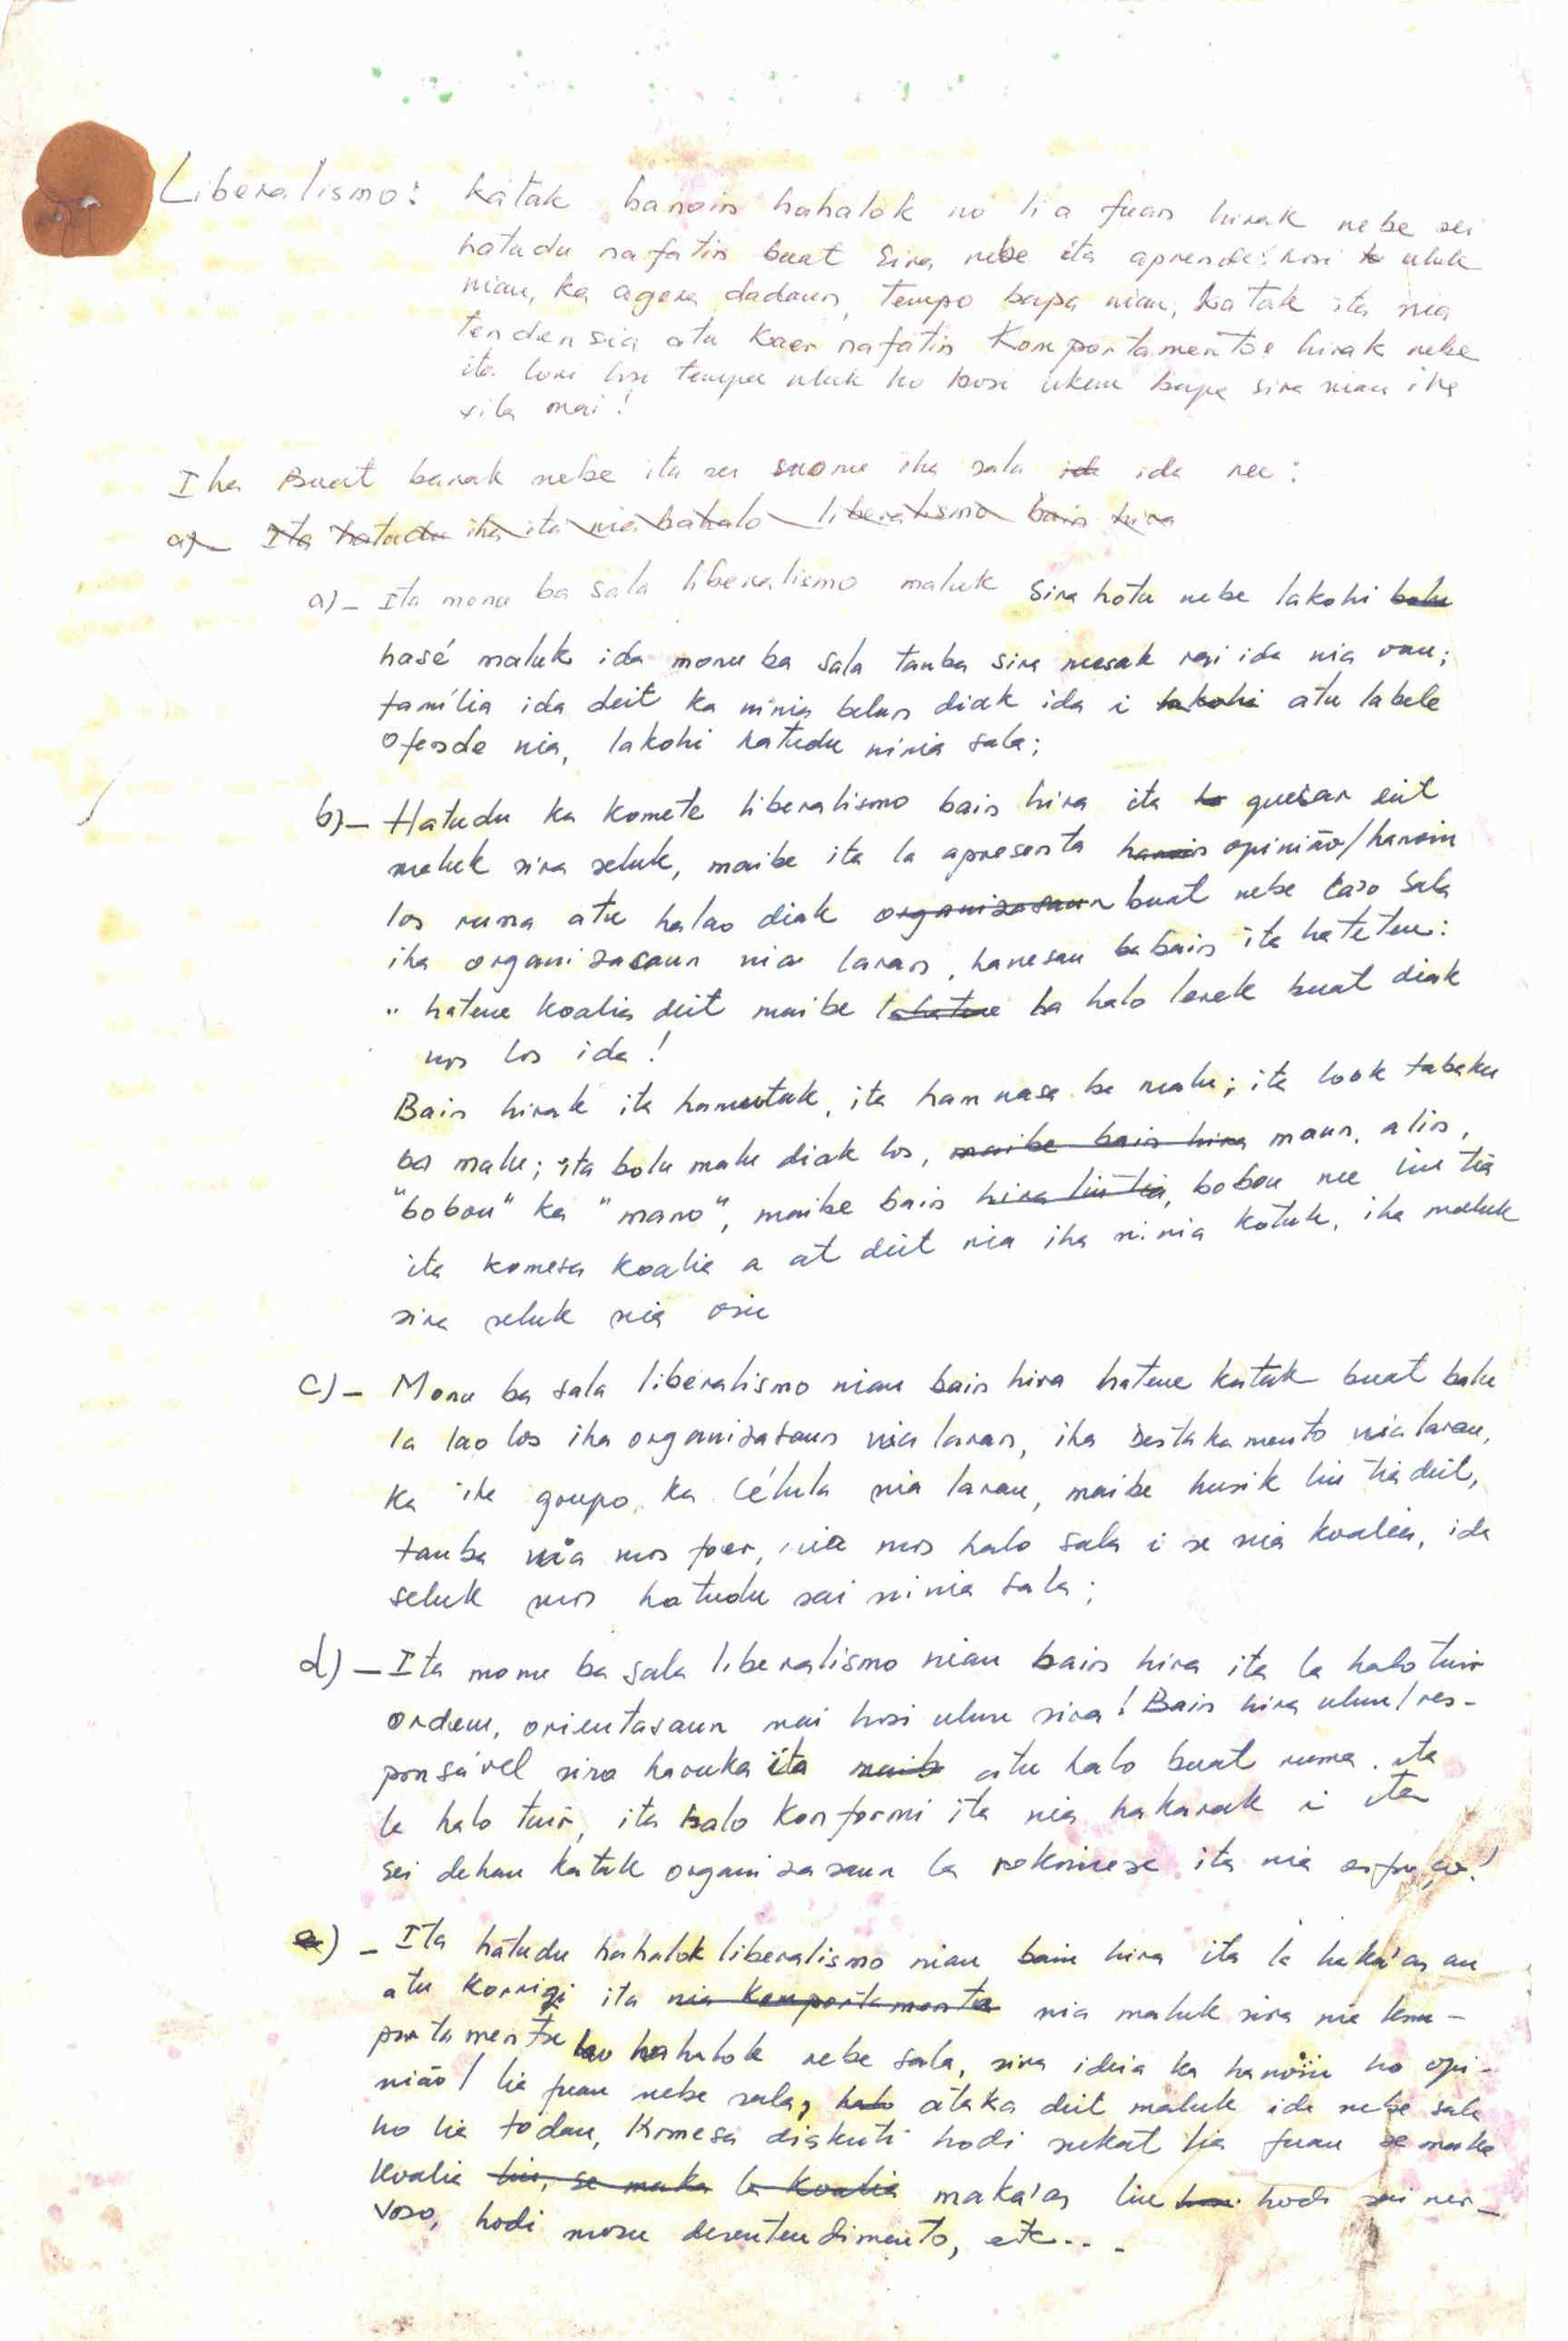 Liberalismo: katak hanoin hahalok no lia fuan hirak nebe sei
hatudu nafatin buat sira nebe ita aprende hosi uluk
nian, ka agora dadaun, tempo bapa nian, katak ita nia
tendensia atu kaer nafatin Komportamentos hirak nebe
ita lori hosi tempu uluk ho hosi ukun bapa sira nian iha
mai!
Iha Buat barak nebe ita sei iha sala ida ida nee:
a) Ita hatudu iha ita nia hahalo liberalismo bain hira
a) - Ita monu ba sala liberalismo maluk sira hotu nebe lakohi bolu
hasé maluk ida monu ba sala tanba sira mesak rai ida nia oan;
família ida deit ka ninia belun diak ida i lakohi atu labele
ofende nia, lakohi hatudu ninia sala;
b) - Hatudu ka komete liberalismo bain hira ita ho quesar eiit
maluk sira seluk, maibe ita la apresenta hanoin opinião/hanoin
los ruma atu halao diak organizasaun buat nebe lao sala
iha organizasaun nia laran, hanesan babain ita hateten:
" hatene koalia deit maibe la hatene la halo lerek buat diak
nos los ida!
Bain hirak ita hamutuk, ita hamnasa ba malu; ita look tabaku
ba malu; ita bolu malu diak los, maibe bain hira maun, alin,
"bobou" ka "mano", maibe bain hira liu tia, bobou nee liu tia
ita komesa koalia a at deit nia iha ninia kotuk, iha maluk
sira seluk nia oin
c) - Monu ba sala liberalismo nian bain hira hatene katak buat balu
la lao los iha organizasaun nia laran, iha Destakamento nia laran,
ka iha grupo, ka Célula nia laran, maibe husik liu tia deit,
tanba nia mos foer, nia mos halo sala i se nia koalia, ida
seluk mos hatudu sai ninia sala;
d) - Ita monu ba sala liberalismo nian bain hira ita la halo tuir
ordem, orientasaun mai hosi ulun sira! Bain hira ulun/res-
ponsável sira haruka ita maib atu halo buat ruma. ita
la halo tuir, ita halo konformi ita nia hakarak i ita
sei dehan katak organizasaun la rekoñese ita nia esforço!
e) - Ita hatudu hahalok liberalismo nian bain hira ita la haka'as an
atu korrigi ita nia komportamentu nia maluk sira nia kom-
portamentu hahalok nebe sala, sira ideia ka hanoin ho opi-
nião/ lia fuan nebe sala, halo ataka deit maluk ida nebe sala
ho lia todan, Komesa diskuti hodi sukat lia fuan se maka
Koalia liu, se maka la koalia maka'as liu hodi sai ner-
voso, hodi mosu desentendimento, etc...